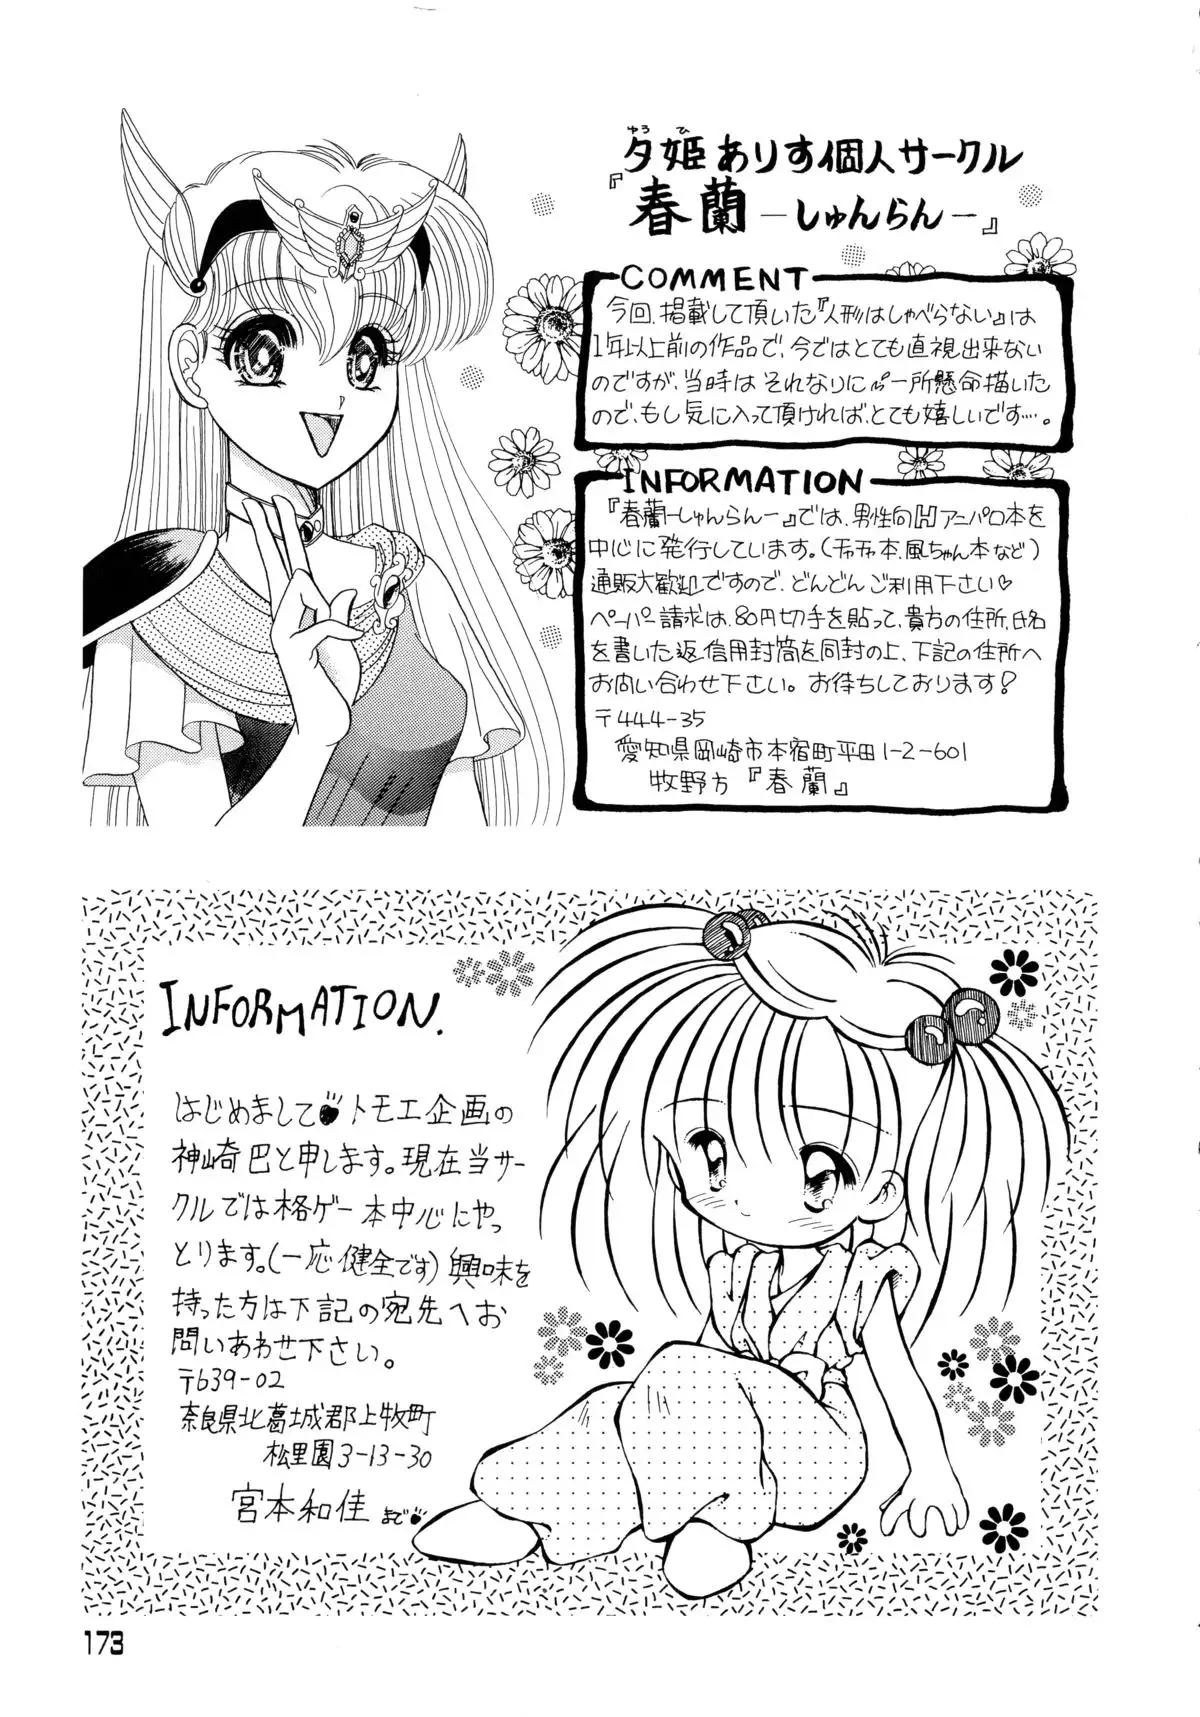 夕姫ありす個人サークル
ゆうひ
『春蘭―しゅんらん―』
COMMENT
今回、掲載して頂いた『人形はしゃべらない』は
1年以上前の作品で、今ではとても直視出来ない
のですが、当時はそれなりに一所懸命描いた
ので、もし気に入って頂ければ、とても嬉しいです…。
INFORMATION
『春蘭―しゅんらん―』では、男性向Hアニパロ本を
中心に発行しています。(チャチャ本、風ちゃん本など)
通販大歓迎ですので、どんどんご利用下さい♡
ペーパー請求は、80円切手を貼って、貴方の住所、氏名
を書いた返信用封筒を同封の上、下記の住所へ
お問い合わせ下さい。お待ちしております!
〒444-35
愛知県岡崎市本宿町平田1-2-601
牧野方『春蘭』
INFORMATION.
はじめまして トモエ企画の
神崎巴と申します。現在当サー
クルでは格ゲー本中心にやっ
とります。(一応健全です)興味を
持った方は下記の宛先へお
問いあわせ下さい。
〒639-02
奈良県北葛城郡上牧町
松里園3-13-30
宮本和佳まで
173